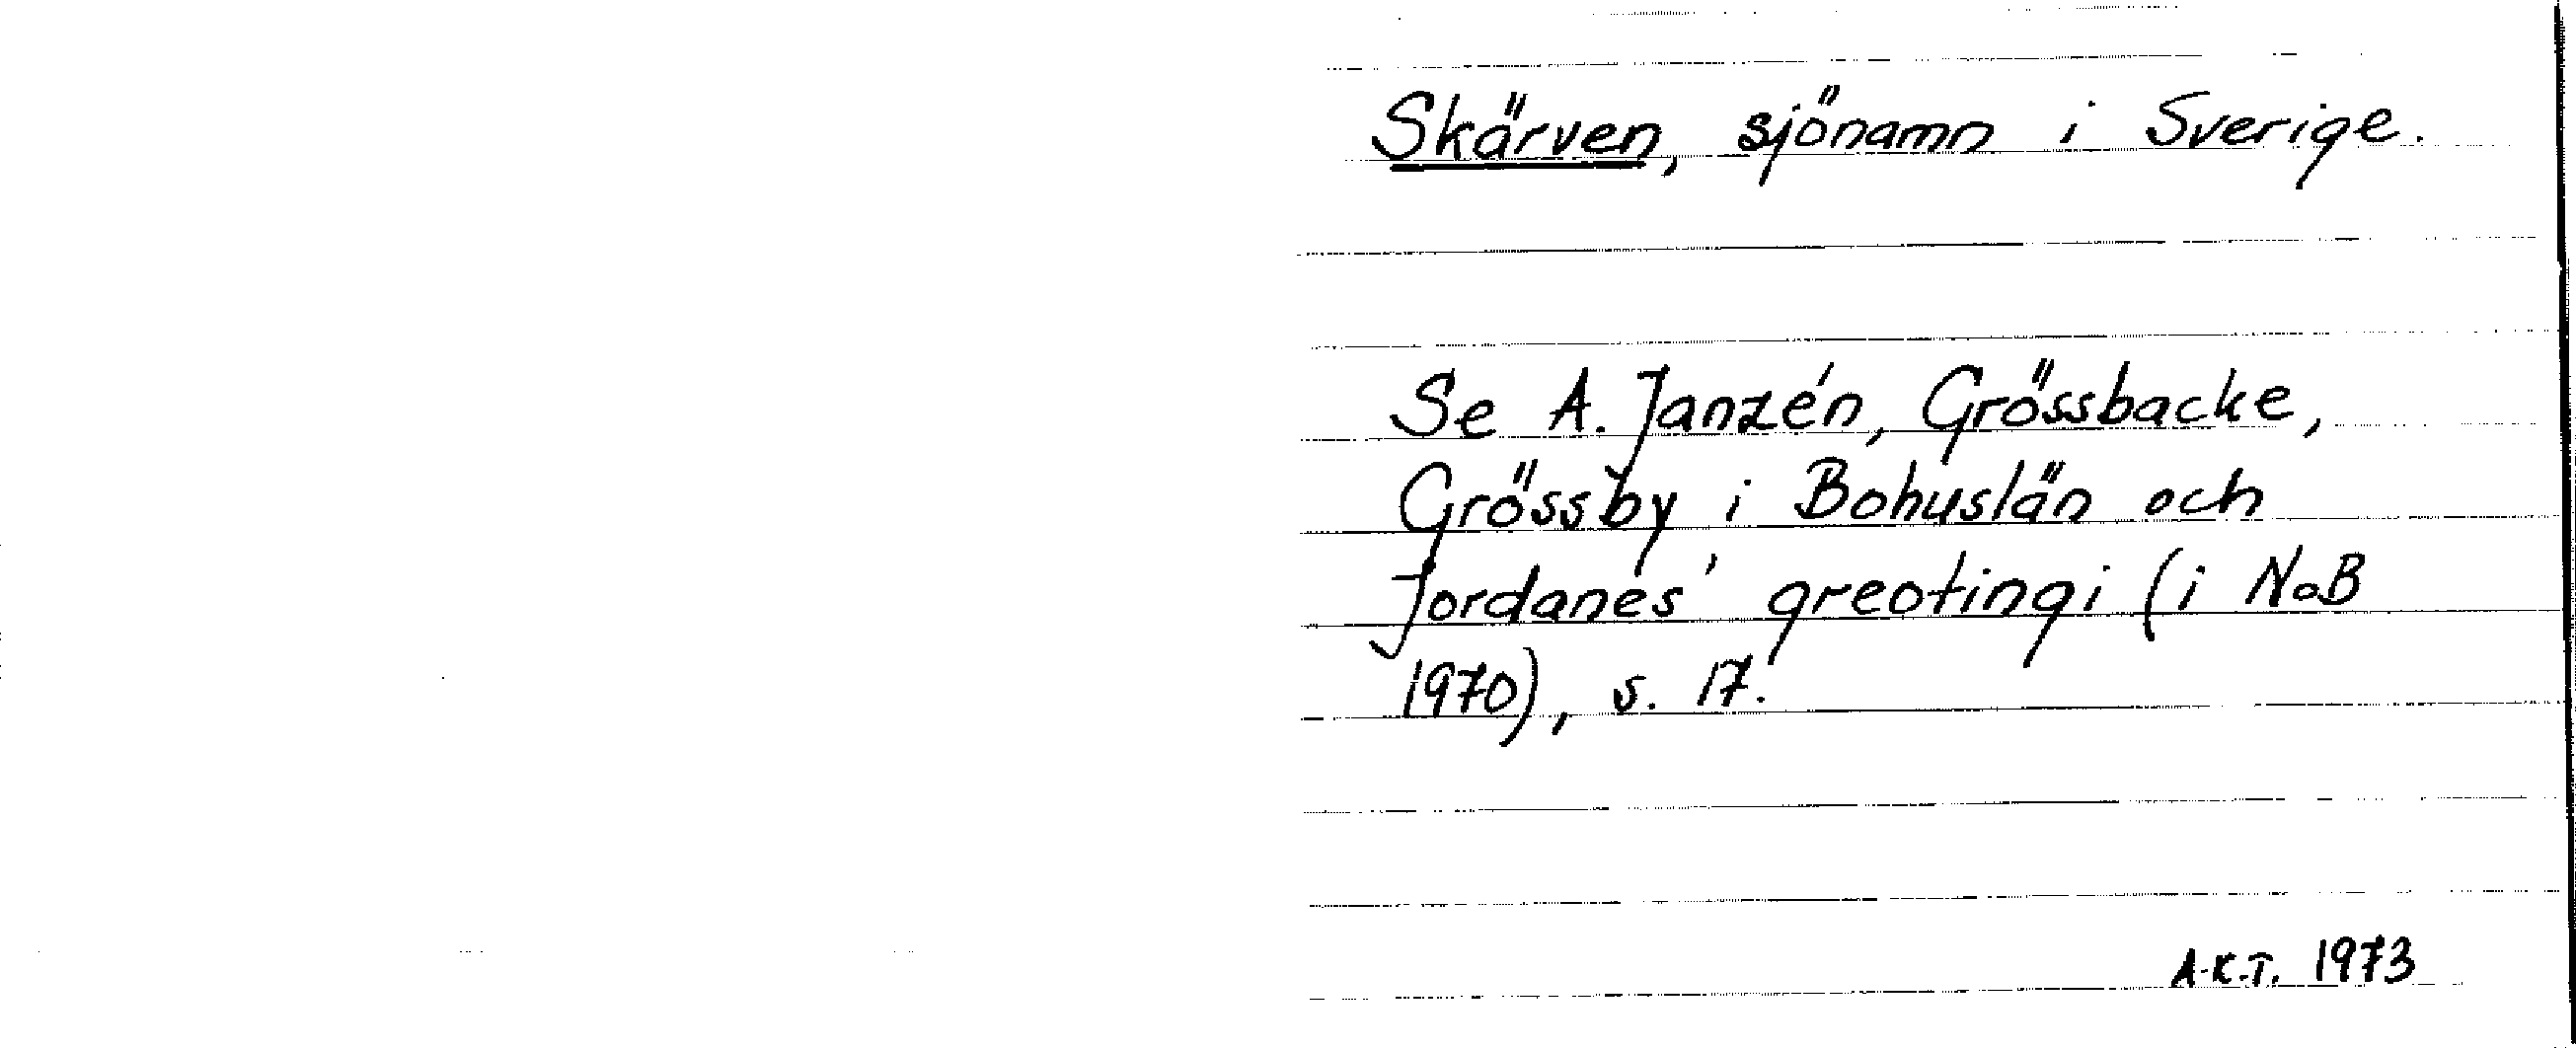 Skärven, sjönamn i Sverige.
Se A. Janzén, Grössbacke,
Grössby i Bohuslän och
Jordanes' greotingi (i NoB
1970), s. 17.
A-K.T. 1973